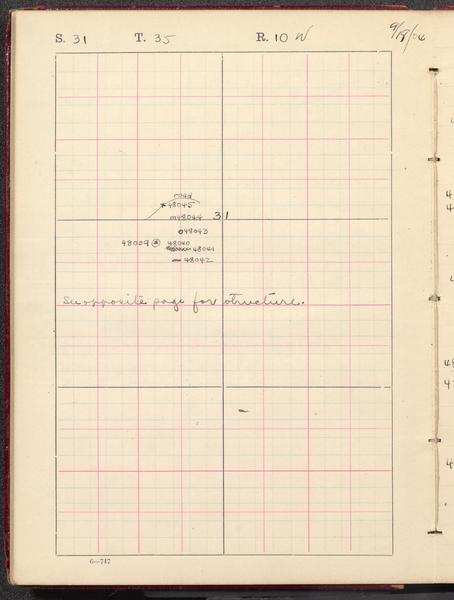 S. 31 T. 35 R. 10 W 9/19/04
road
48045
48044 31
48043
48039 48040
48041
48042
See opposite page for structure.
6—747